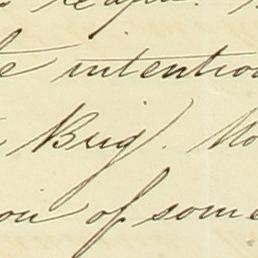 e intention
Brig). Mo
on of some